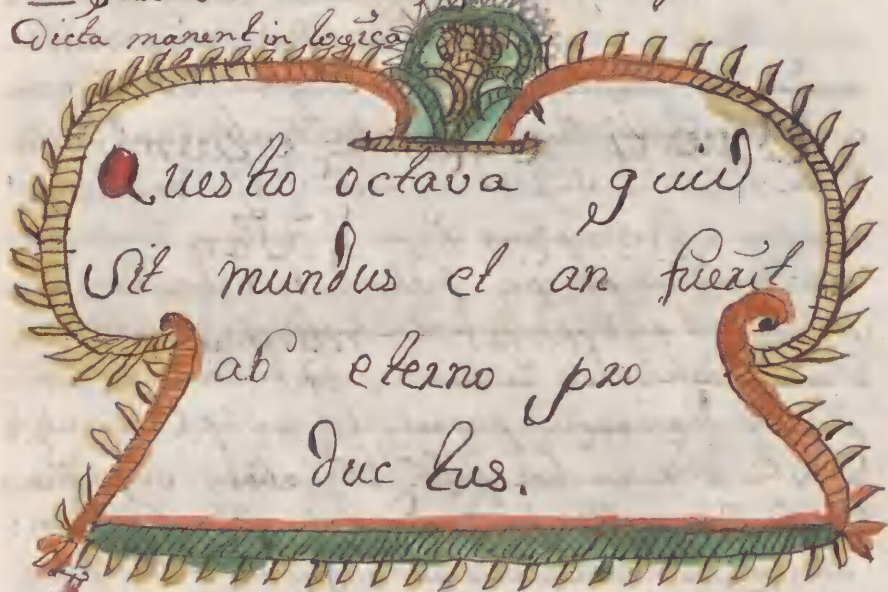 Dicta manent in logica
Questio octava quid
Sit mundus et an fuerit
ab eterno pro
ductus.